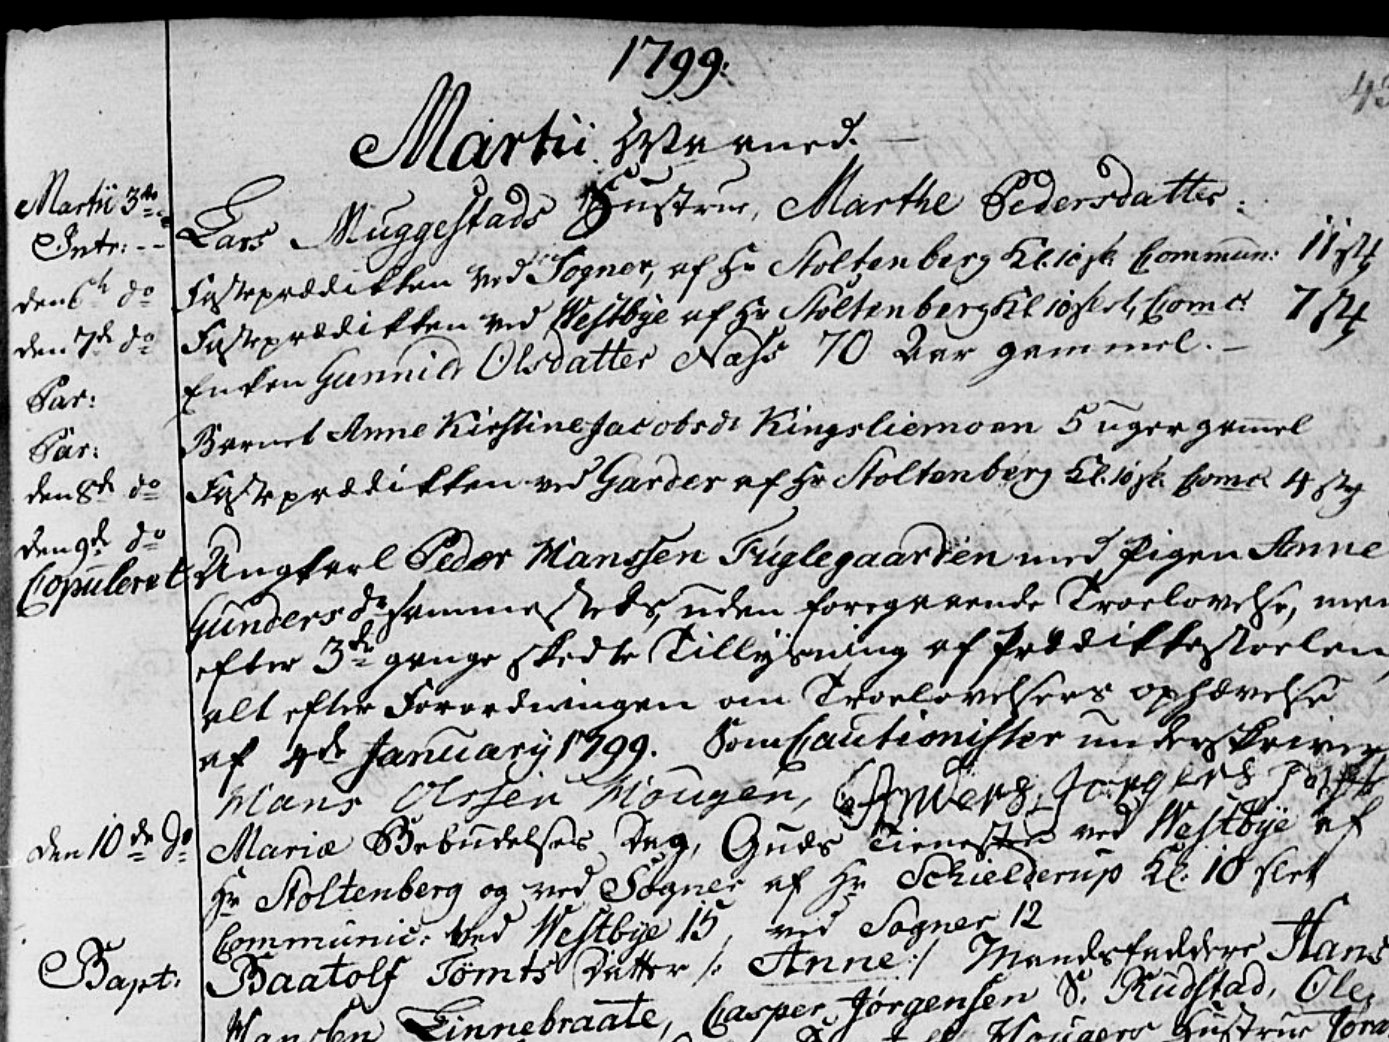 1799.
43
Martii Maaned.
Martii 3die Lars Muggestads Hustrue, Marthe Pedersdatter.
Intr: -- Fasteprædikken ved Sogner, af Hr Stoltenberg Kl. 10 sl. Commun: 11 stk
den 6te do Fasteprædikken ved Westbye af Hr Stoltenberg Kl 10 slet, Comct 7 stk
den 7de do Enken Gunnild Olsdatter Næss 70 Aar gammel.
Par: Barnet Anne Kirstine Jacobsdr Kingsliemoen 5 uger gamel
Par:
den 8de do Fasteprædikken ved Garder af Hr Stoltenberg Kl. 10 sl. Comct 4 stk
den 9de do Ungkarl Peder Hanssen Fuglegaarden med Pigen Anne
Copuleret Gundersdr sammesteds, uden foregaaende Troelovelse, men
efter 3de gange skedte Tillysning af Prædikkestoelen,
alt efter Forordningen om Troelovelsers ophævelse
af 4de January 1799. Som Cautionister underskriver
Hans Olssen Mougen,
den 10de do Mariæ Bebudelses Dag, Guds Tienesten ved Westbye af
Hr Stoltenberg og ved Sogner af Hr Schielderup Kl. 10 slet
Communic: ved Westbye 15, ved Sogner 12
Bapt: Baatolf Tomts Datter /: Anne :/ Mandsfaddere Hans
Hansen Linnebraate, Casper Jørgensen S. Rudstad, Ole
Hougers Hustrue